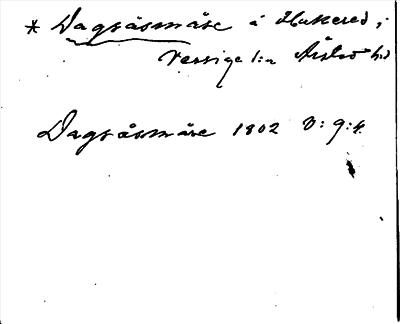 * Dagsåsmåse å Hultered,
Versige l:a Åistad h:d
Dagsåsmåse 1802 V: 9: 4.